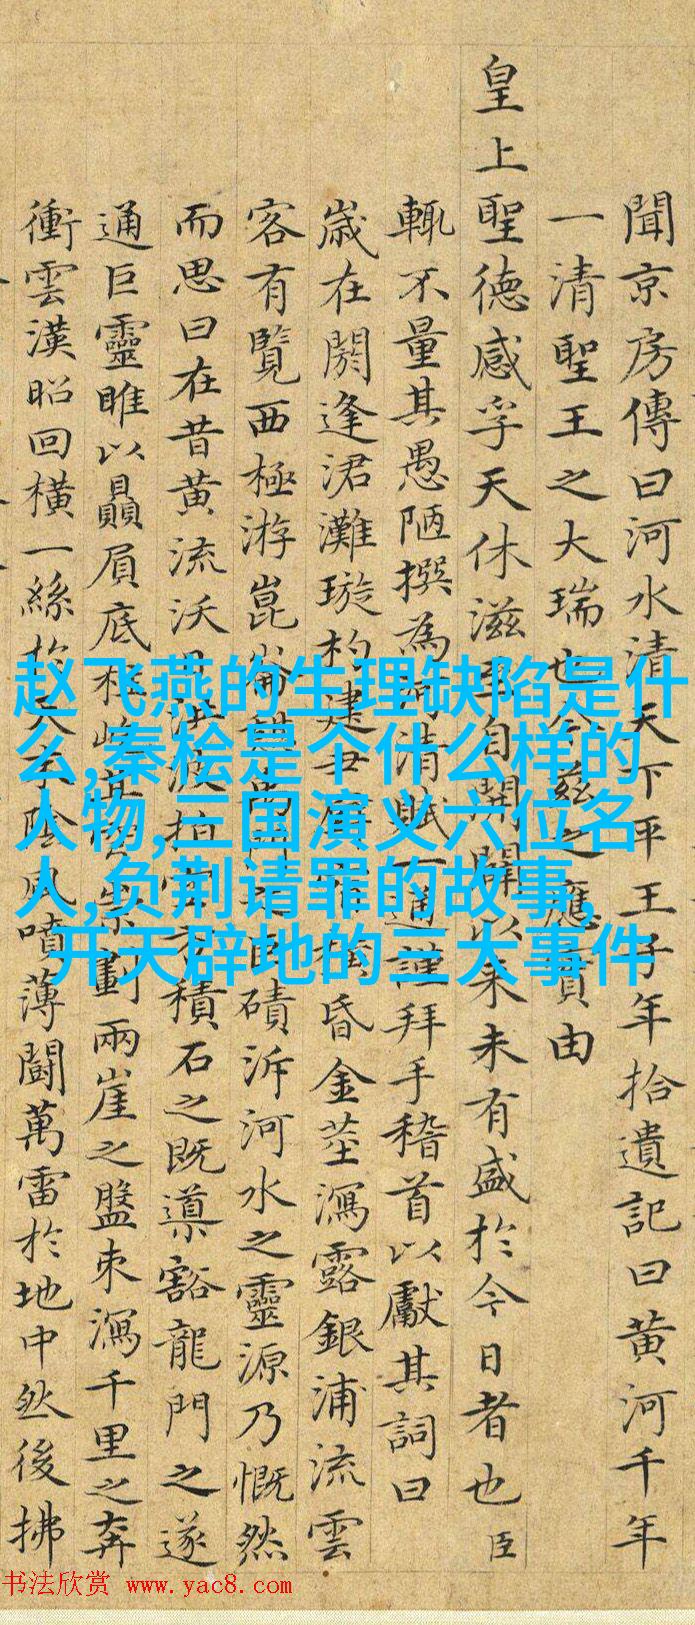 聞京房傳曰河水清天下平王子年拾遺記曰黄河千年
一清聖王之大瑞也今兹之應實由
皇上聖德感孚天休滋至自開闢以来未有盛於今日者也臣
輒不量其愚陋撰為河清賦一通謹拜手稽首以獻其詞曰
歳在閼逢涒灘璇杓建昏金莖瀉露銀浦流雲
客有覽西極游崑崙磧泝河水之靈源乃慨然
而思曰在昔黄流沃洪波拍空積石之既導豁龍門之遂
通巨靈雎以贔屓底柱峙其劃兩崖之盤束瀉千里之奔
衝雲漢昭回橫一絲於天陰風噴薄鬭萬雷於地中然後拂
赵飞燕的生理缺陷是什
么,秦桧是个什么样的
人物,三国演义六位名
人,负荆请罪的故事,
开天辟地的三大事件
书法欣赏 www.yac8.com